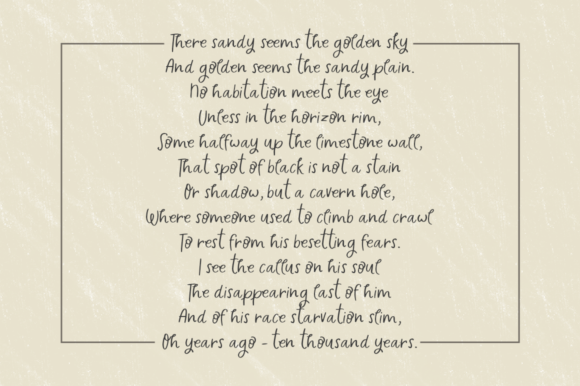 There sandy seems the golden sky
And golden seems the sandy plain.
No habitation meets the eye
Unless in the horizon rim,
Some halfway up the limestone wall,
That spot of black is not a stain
Or shadow, but a cavern hole,
Where someone used to climb and crawl
To rest from his besetting fears.
I see the callus on his soul
The disappearing last of him
And of his race starvation slim,
Oh years ago - ten thousand years.